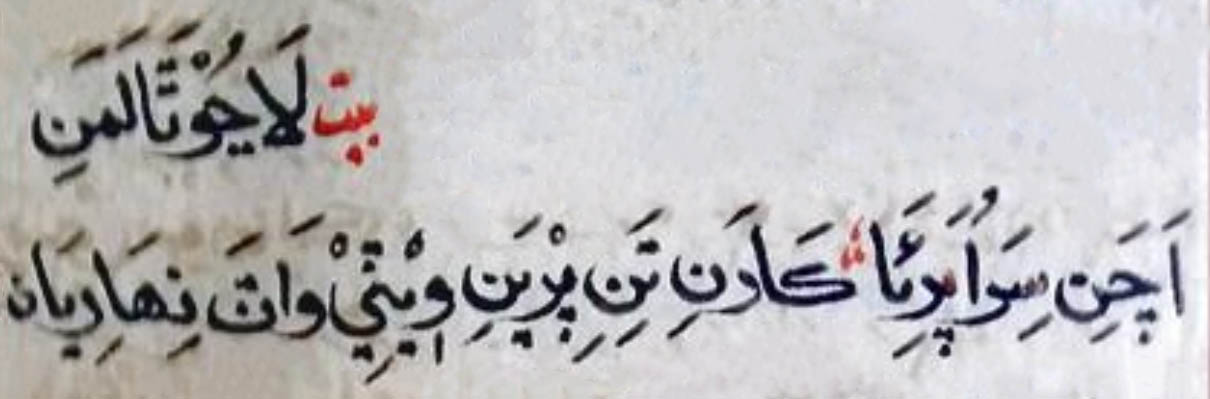 بيت لَاجُوْتَالَمَنِ
اَچَنِ سِوَاُ پِرَئَا كَارَنِ تَنِ پِرْيَنِ وِيْتِيْ وَاتَ نِهَارِيَان